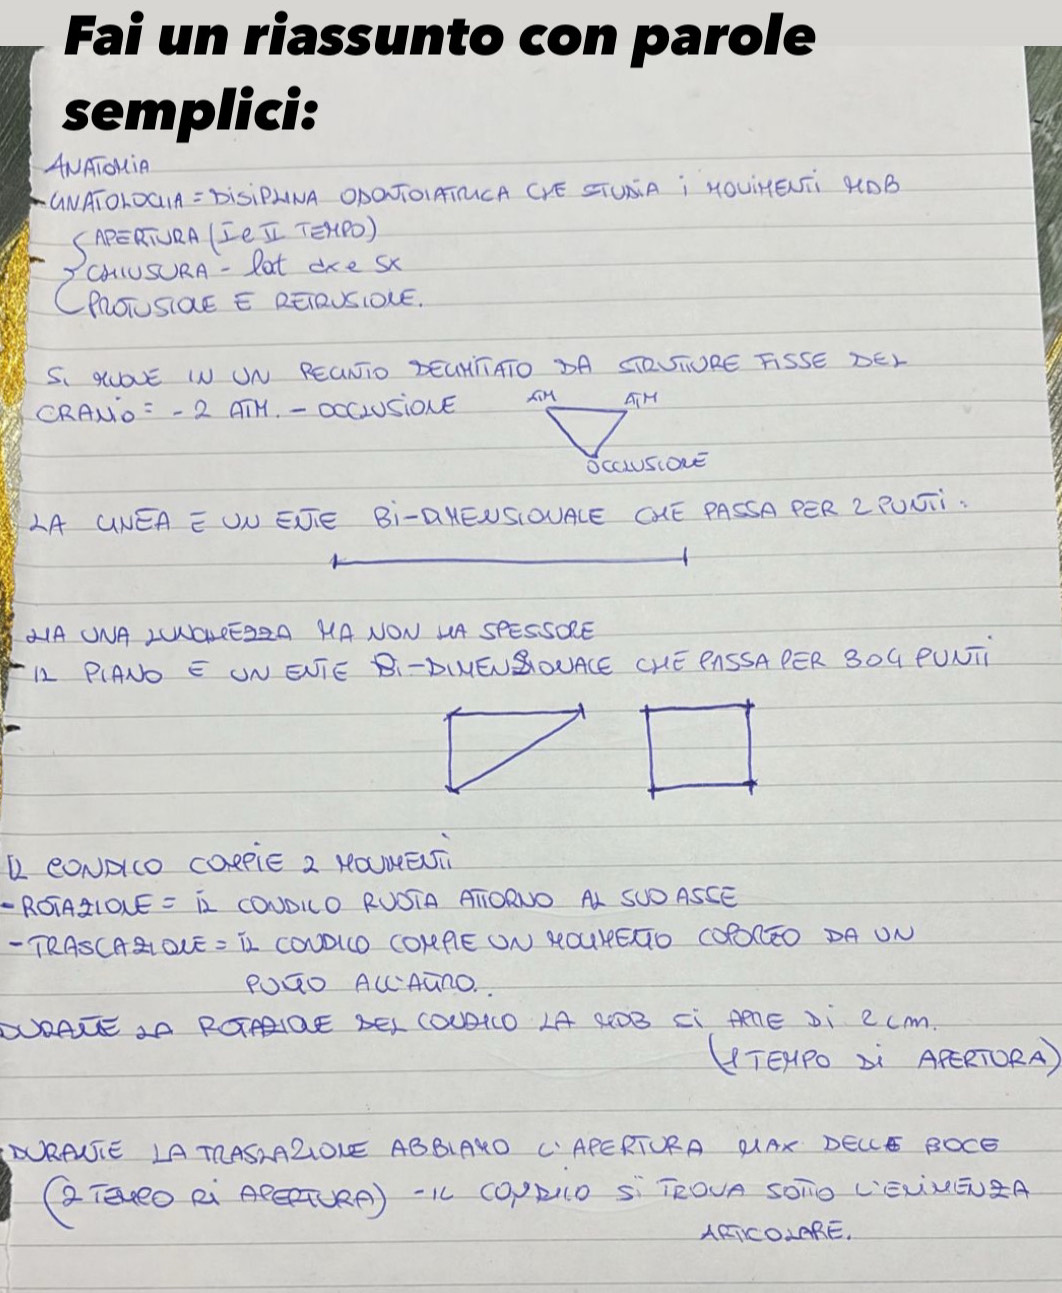 Fai un riassunto con parole
semplici:
ANATOMIA
- GNATOLOGIA = DISIPLINA ODONTOIATRICA CHE STUDIA i MOVIMENTI MDB
APERTURA (I e II TEMPO)
CHIUSURA - lat dx e sx
PROTUSIONE E RETRUSIONE.
Si MUOVE IN UN RECINTO DELIMITATO DA STRUTTURE FISSE DEL
CRANiO = - 2 ATM. - OCCLUSIONE
ATM ATM
OCCLUSIONE
LA LINEA E UN ENTE Bi-DIMENSIONALE CHE PASSA PER 2 PUNTi :
HA UNA LUNGHEZZA MA NON HA SPESSORE
- IL PIANO E UN ENTE Bi-DIMENSIONALE CHE PASSA PER 3 O 4 PUNTi
IL CONDILO COMPIE 2 MOVIMENTi
- ROTAZIONE = iL CONDILO RUOTA ATTORNO AL SUO ASSE
- TRASLAZIONE = iL CONDILO COMPIE UN MOVIMENTO CORPOREO DA UN
PUNTO ALL'ALTRO.
DURANTE LA ROTAZIONE DEL CONDILO LA MDB Si APRE Di 2 cm.
(1 TEMPO Di APERTURA)
DURANTE LA TRASLAZIONE ABBIAMO L'APERTURA MAX DELLE BOCE
(2 TEMPO Di APERTURA) - IL CONDILO Si TROVA SOTTO L'EMIMENZA
ARTICOLARE.